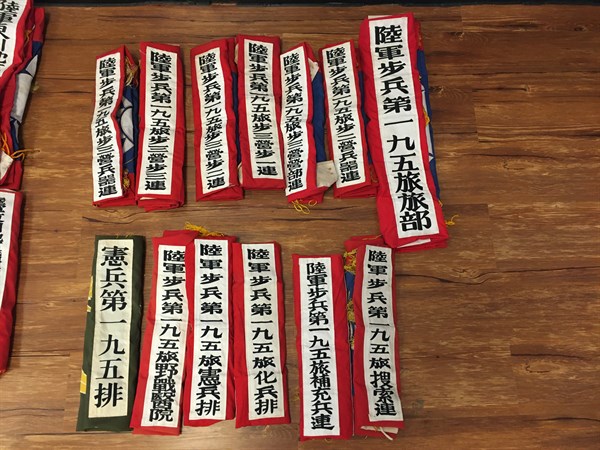 陸軍步兵第一九五旅步三營兵器連
陸軍步兵第一九五旅步三營步三連
陸軍步兵第一九五旅步三營步二連
陸軍步兵第一九五旅步三營步一連
陸軍步兵第一九五旅步三營營部連
陸軍步兵第一九五旅步二營兵器連
陸軍步兵第一九五旅旅部
憲兵第一九五排
陸軍步兵第一九五旅野戰醫院
陸軍步兵第一九五旅憲兵排
陸軍步兵第一九五旅化兵排
陸軍步兵第一九五旅補充兵連
陸軍步兵第一九五旅搜索連